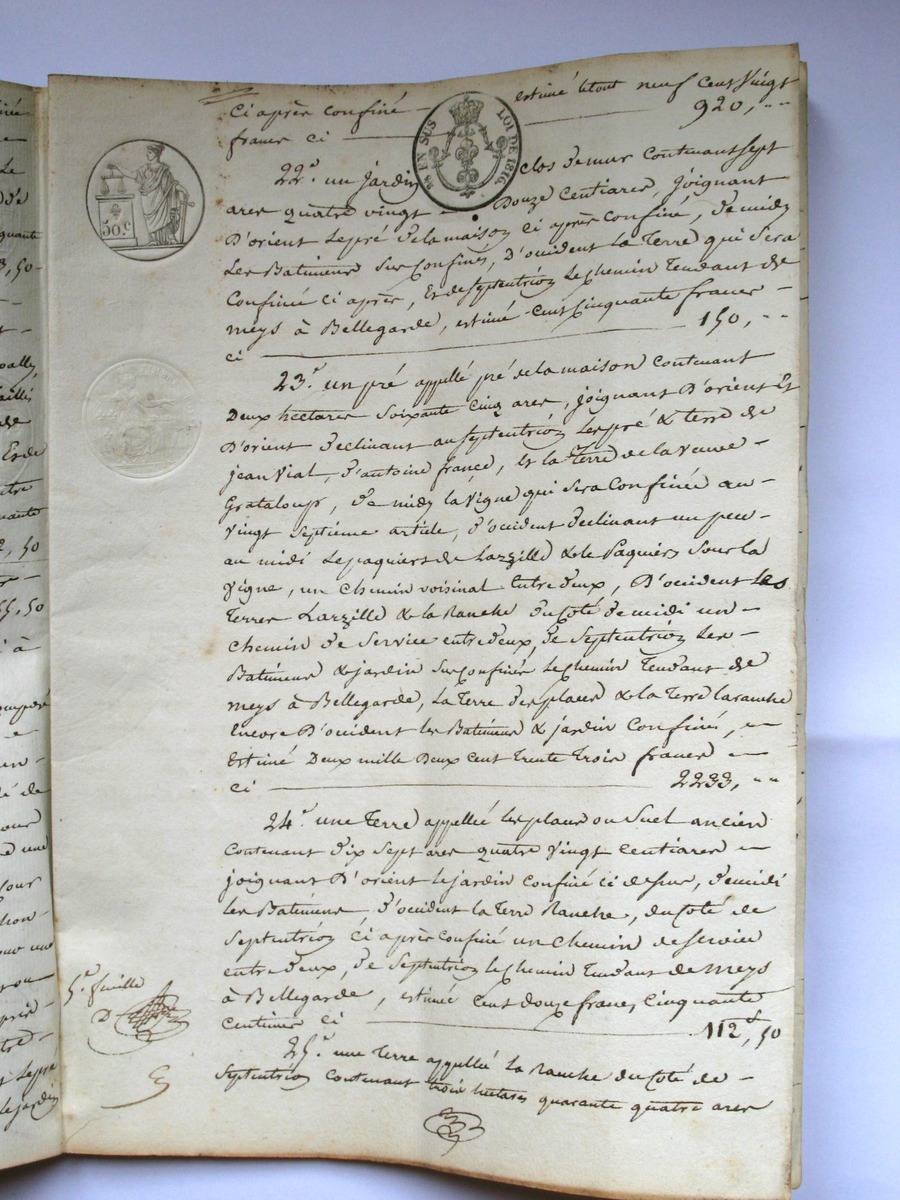 ci après confiné — estimé le tout neuf cent vingt
francs ci — 920, ""
EN SUS LOI DE 1816
50.c
22.e un jardin clos de mur contenant sept
ares quatre vingt — Douze centiares, joignant
D'orient le pré de la maison ci après confiné, de midy
les Batimens sus confinés, d'occident la terre qui sera
confiné ci après, et de septentrion le chemin tendant de
meys à Bellegarde, estimé cent cinquante francs —
ci — 150, ""
23.e un pré appellé pré de la maison contenant
Deux hectares soixante cinq ares, joignant D'orient et
D'orient declinant au septentrion les pré & terre de
jean Vial, d'antoine françé, et la terre de la veuve —
Grataloup, de midy la vigne qui sera confinée au —
vingt septieme article, d'occident declinant un peu —
au midi le paquiers de Larzille & le Paquier sour la
vigne, un chemin voisinal entre deux, D'occident les
terres Larzille & la Ranche du coté de midi un —
chemin de service entre deux, de septentrion les —
Batimens & jardin sus confinés le chemin tendant de
meys à Bellegarde, la terre des places & la terre la ranche
encore D'occident les Batimens & jardin confinés, —
estimé Deux mille Deux cent trente trois francs —
ci — 2233, ""
24.e une terre appellée les places ou Suel ancien
contenant dix sept ares quatre vingt centiares —
joignant D'orient le jardin confiné ci dessus, de midi
les Batimens d'occident la terre Ranche, du coté de
septentrion ci après confiné un chemin de service
entre deux, de septentrion le chemin tendant de meys
à Bellegarde, estimée cent douze francs cinquante
centimes ci — 112, 50
5.e feuille
25.e une terre appellée la Ranche du coté de —
septentrion contenant trois hectares quarante quatre ares